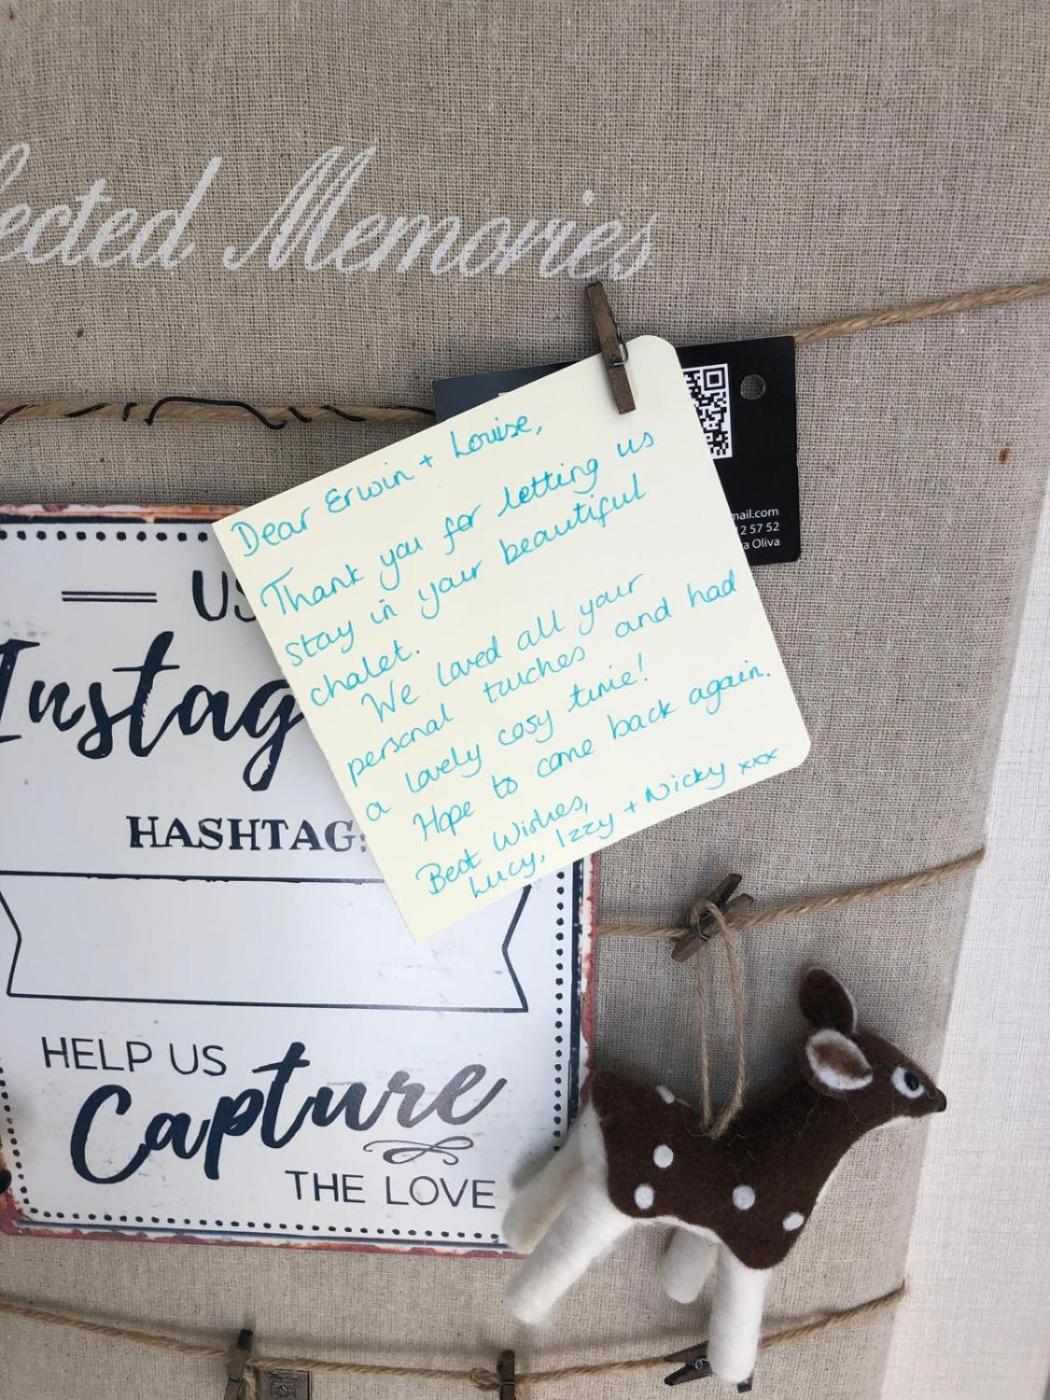 lected Memories
Dear Erwin + Louise,
Thank you for letting us
stay in your beautiful
chalet.
We loved all your
personal touches and had
a lovely cosy time!
Hope to come back again.
Best Wishes,
Lucy, Izzy + Nicky xxx
mail.com
2 57 52
a Oliva
US
Instag
HASHTAG:
HELP US
Capture
THE LOVE